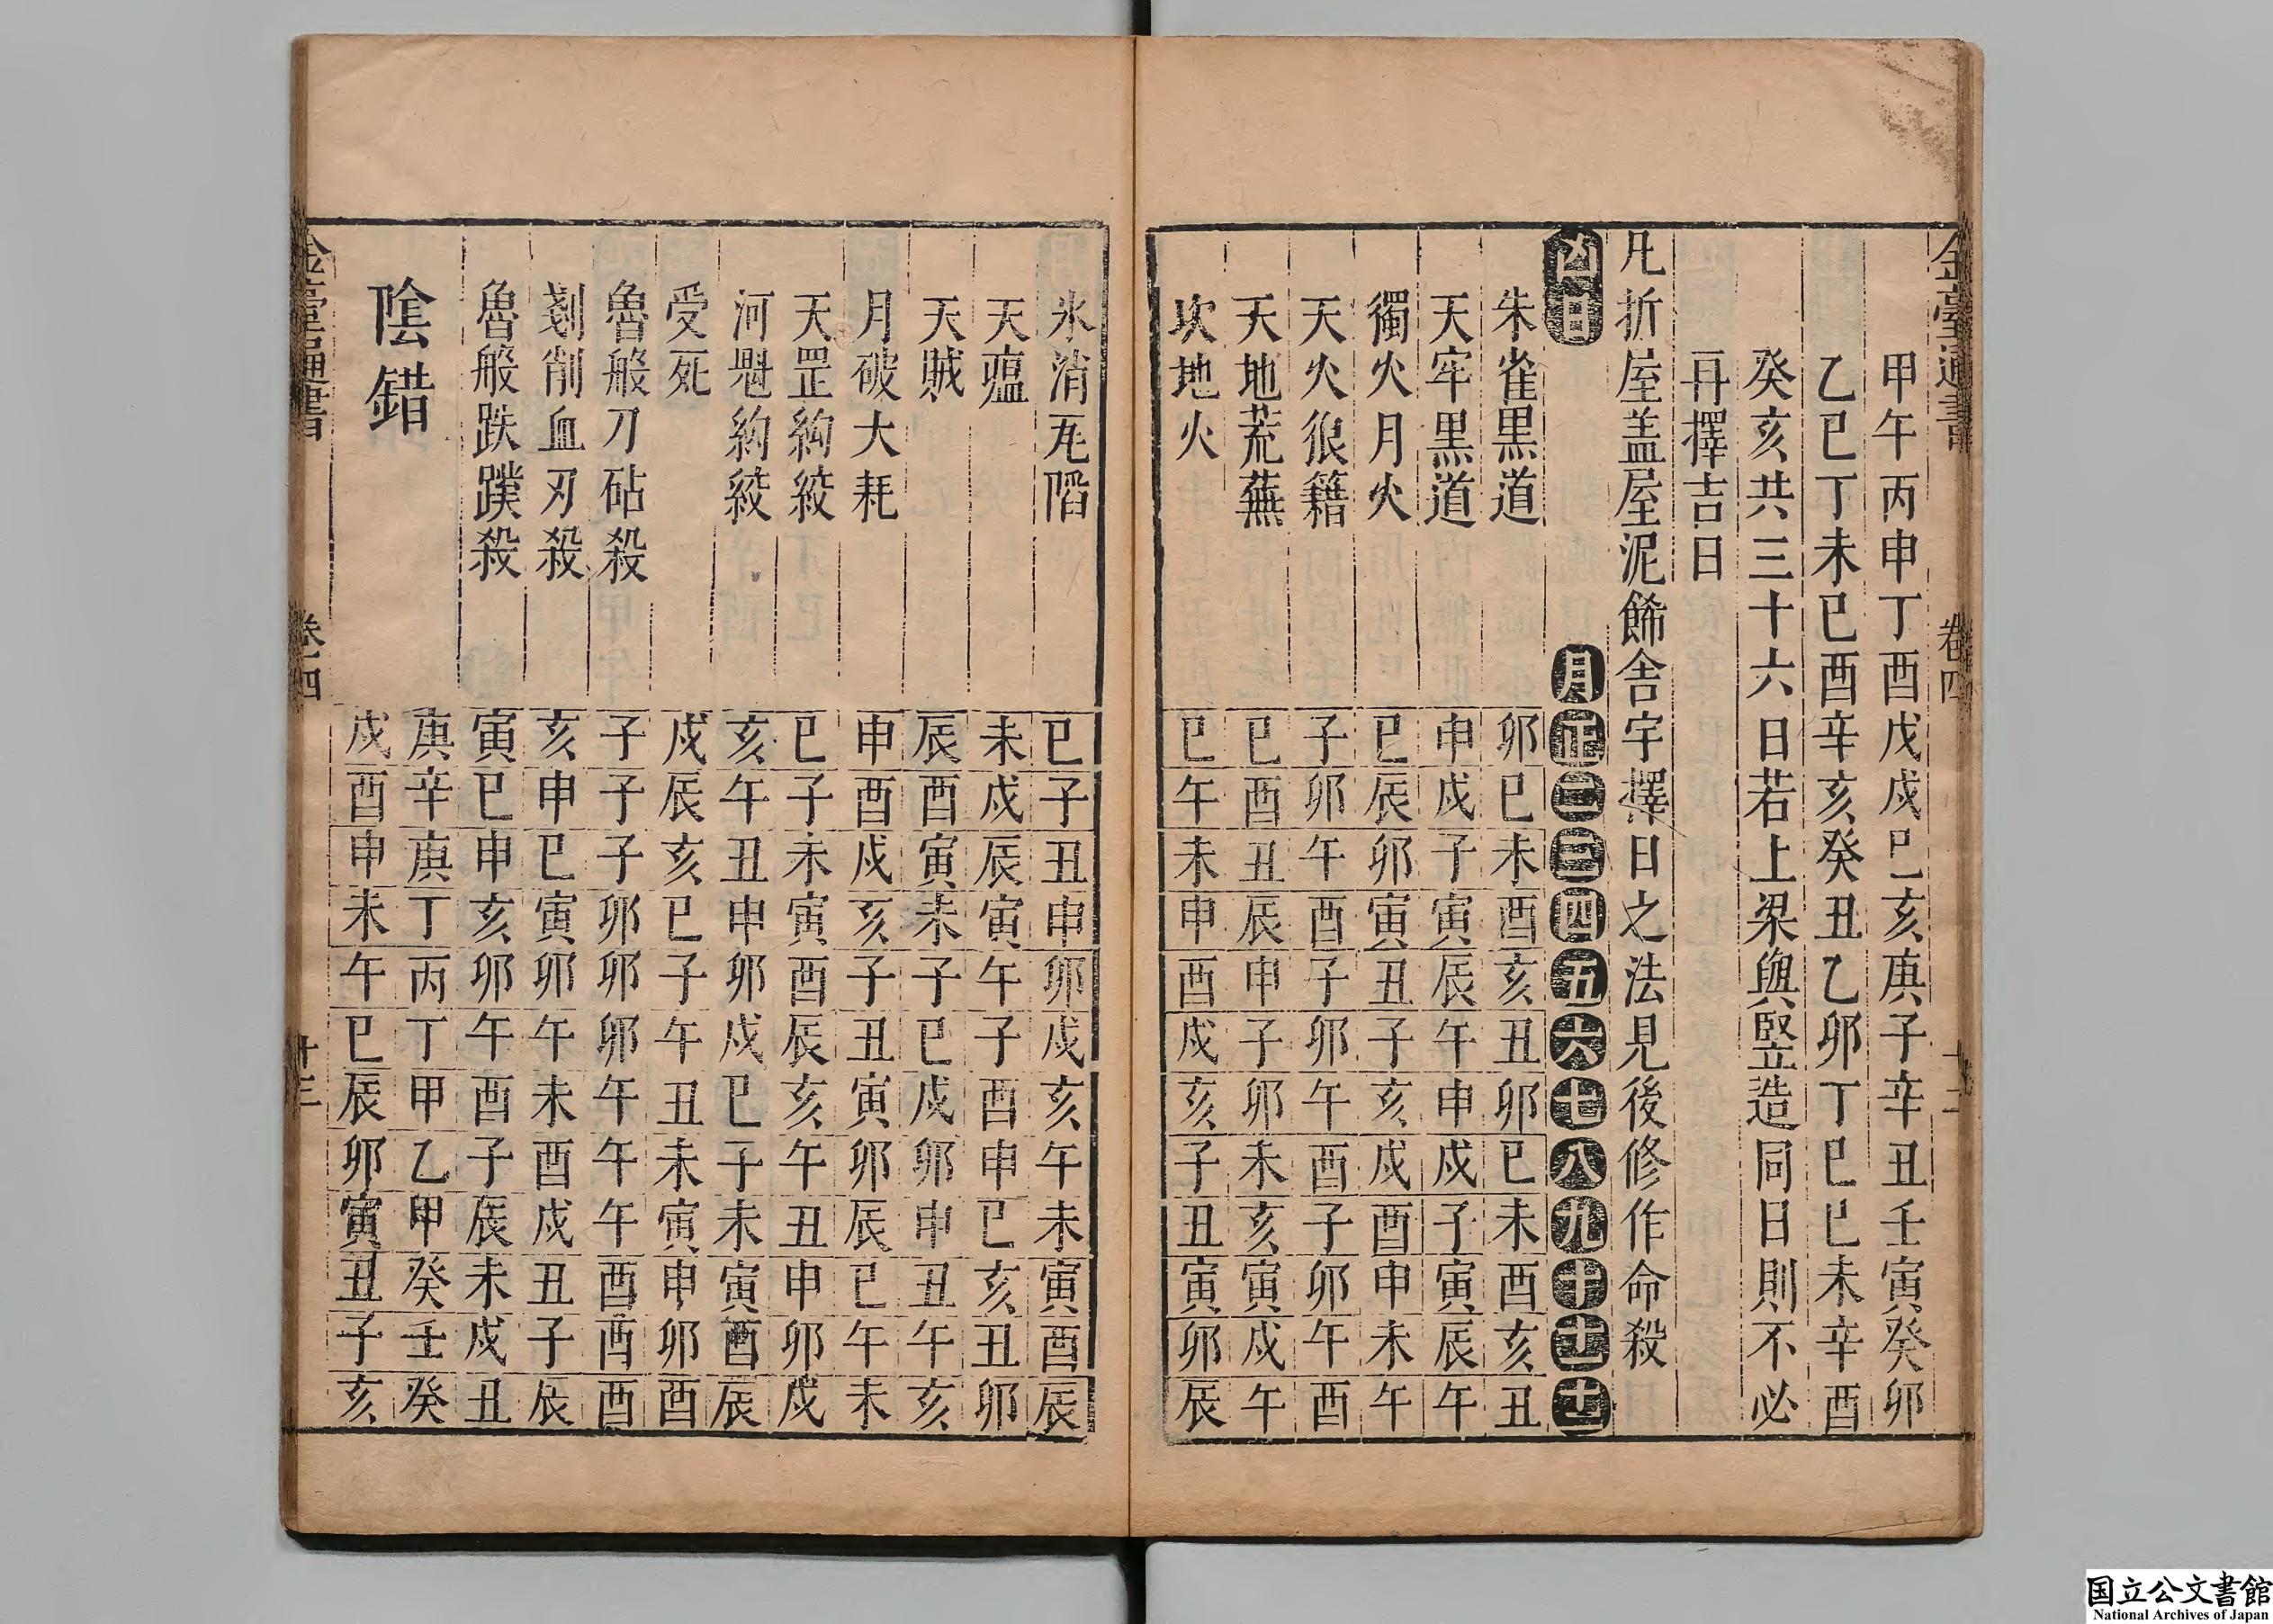 金臺通書
卷四
甲午丙申丁酉戊戌巳亥庚子辛丑壬寅癸卯
乙巳丁未巳酉辛亥癸丑乙卯丁巳巳未辛酉
癸亥共三十六日若上梁與竪造同日則不必
再擇吉日
凡折屋盖屋泥餙舎宇擇日之法見後修作命殺
凶日 月正二三四五六七八九十十一十二
朱雀黒道 卯巳未酉亥丑卯巳未酉亥丑
天牢黒道 申戌子寅辰午申戌子寅辰午
獨火月火 巳辰卯寅丑子亥戌酉申未午
天火狼籍 子卯午酉子卯午酉子卯午酉
天地荒蕪 巳酉丑辰申子卯未亥寅戌午
坎地火 巳午未申酉戌亥子丑寅卯辰
氷消瓦陷 巳子丑申卯戌亥午未寅酉辰
天瘟 未戌辰寅午子酉申巳亥丑卯
天賊 辰酉寅未子巳戌卯申丑午亥
月破大耗 申酉戌亥子丑寅卯辰巳午未
天罡紁絞 巳子未寅酉辰亥午丑申卯戌
河魁紁絞 亥午丑申卯戌巳子未寅酉辰
受死 戌辰亥巳子午丑未寅申卯酉
魯般刀砧殺 子子子卯卯卯午午午酉酉酉
剗削血刃殺 亥申巳寅卯午未酉戌丑子辰
魯般跌蹼殺 寅巳申亥卯午酉子辰未戌丑
陰錯 庚辛庚丁丙丁甲乙甲癸壬癸
戌酉申未午巳辰卯寅丑子亥
金臺通書
卷四
十三
国立公文書館
National Archives of Japan